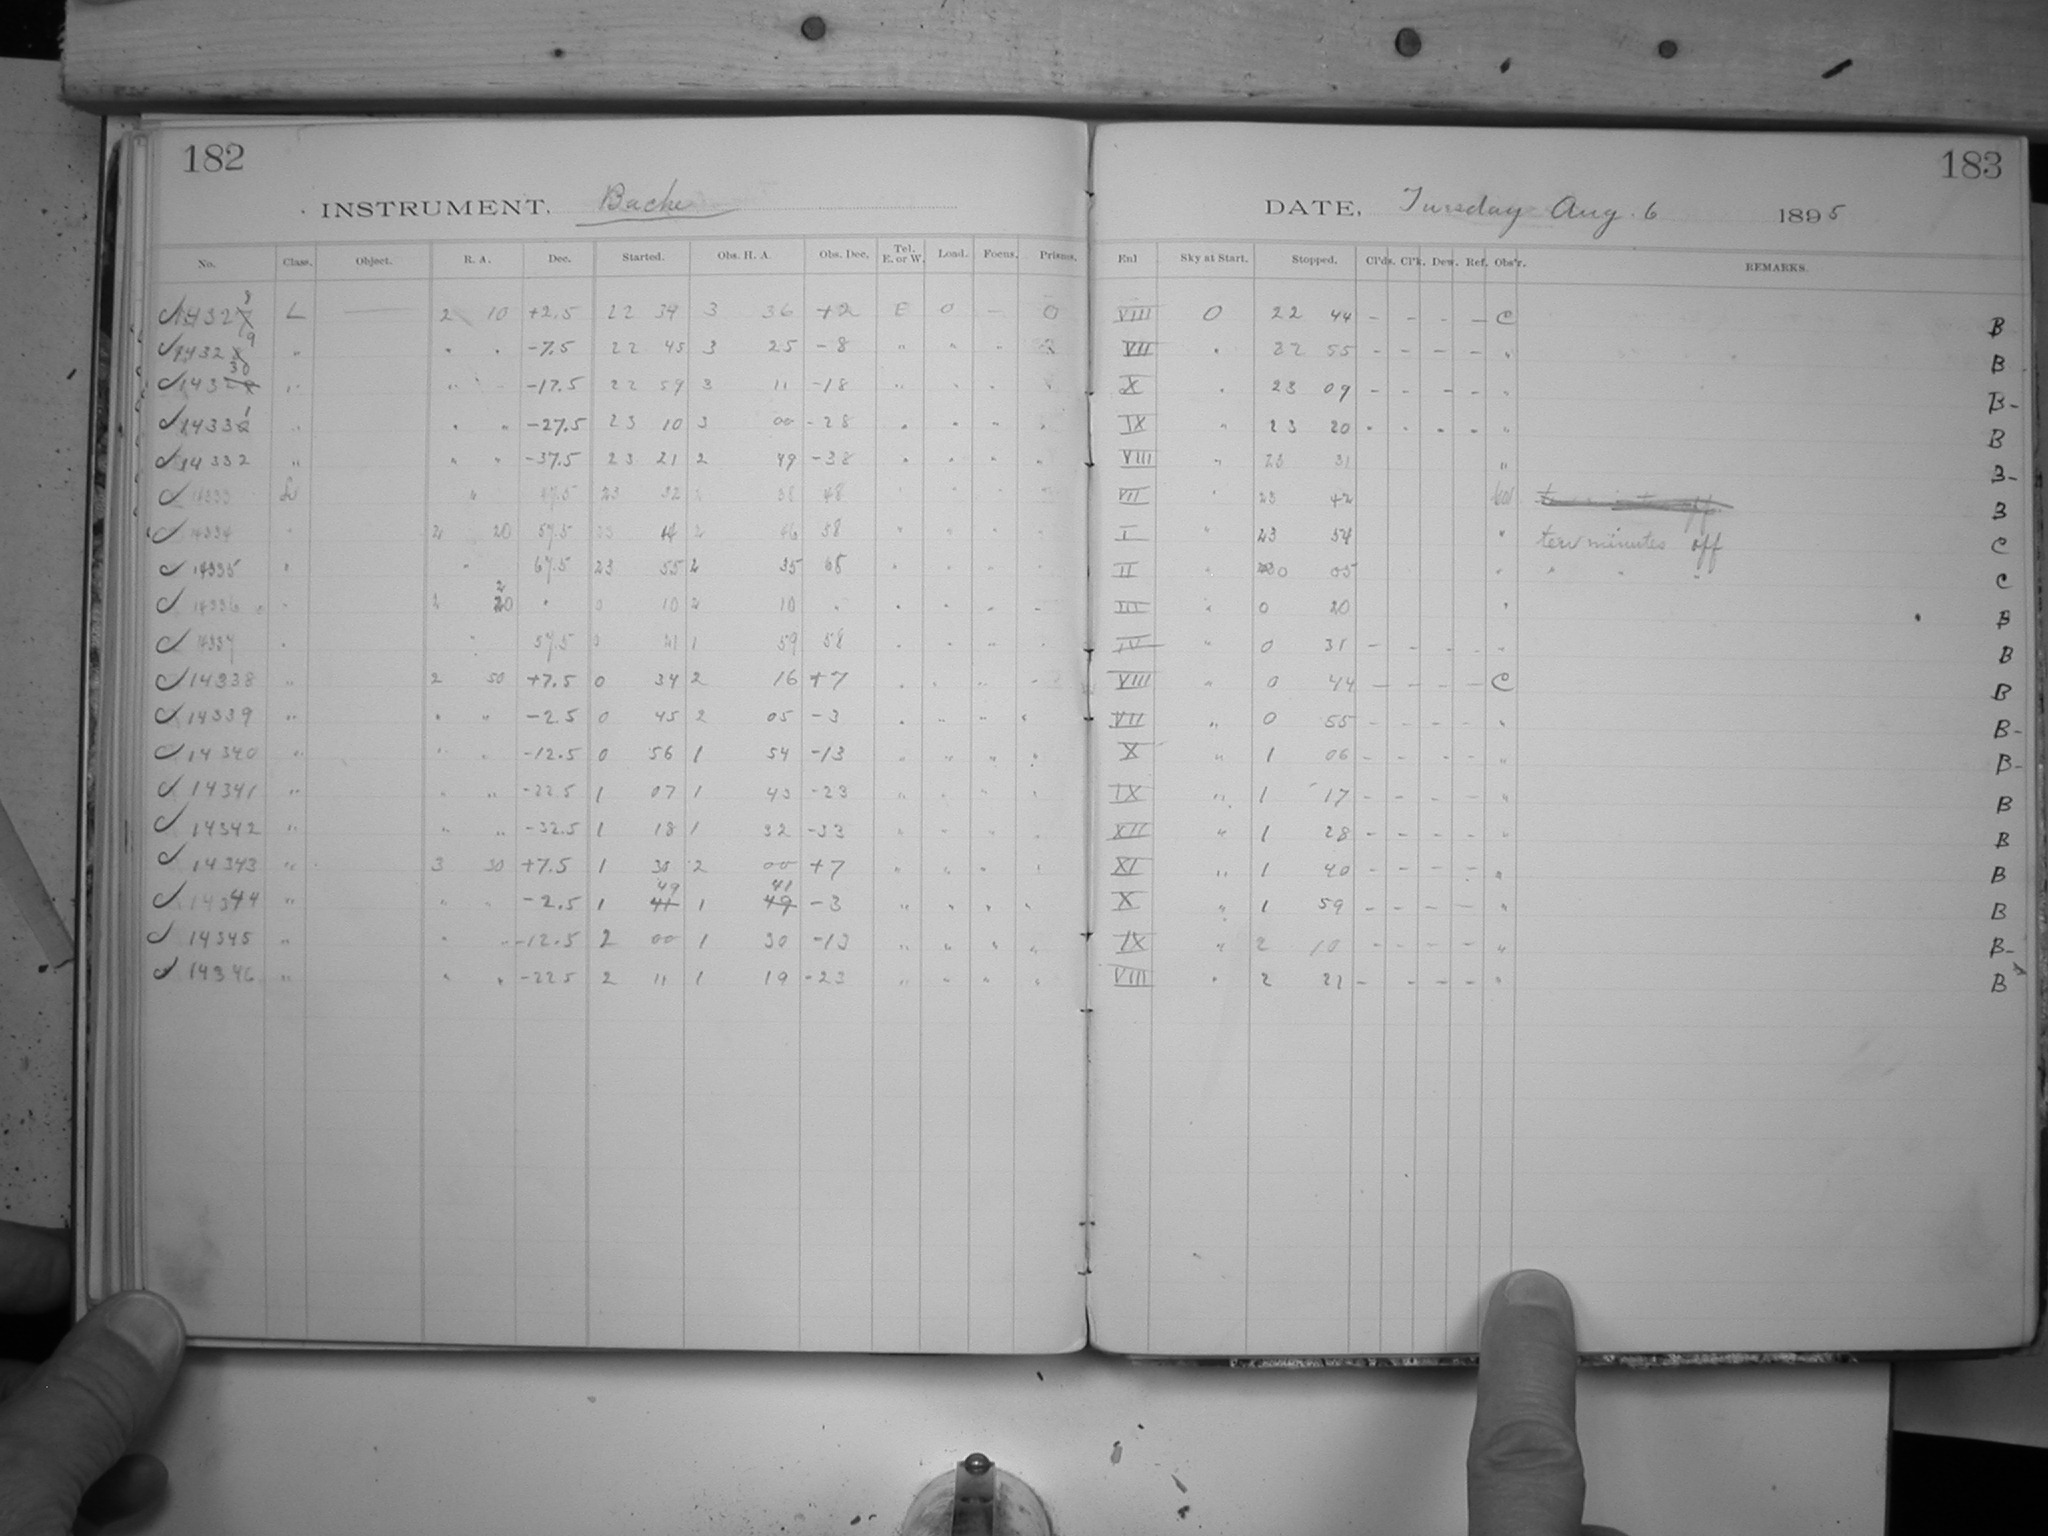 182
INSTRUMENT. Bache
No. Class. Object. R. A. Dec. Started. Obs. H. A. Obs. Dec. Tel. E. or W. Load. Focus. Prisms.
14328 L — 2 10 +2.5 22 34 3 36 +2 E 0 — 0
14329 " " " -7.5 22 45 3 25 -8 " " "
14330 " " -17.5 22 59 3 11 -18 " " " "
14331 " " " -27.5 23 10 3 00 -28 " " " "
14332 " " " -37.5 23 21 2 49 -38 " " " "
14333 " 47.5 23 32 2 38 48
14334 " 2 20 57.5 23 44 2 46 58 " " " "
14335 " " 67.5 23 55 2 35 68 " " " "
14336 " 2 " 0 10 2 10 " " " " "
14337 " " 57.5 0 21 1 59 58 " " " "
14338 " 2 50 +7.5 0 34 2 16 +7 " " " "
14339 " " " -2.5 0 45 2 05 -3 " " " "
14340 " " " -12.5 0 56 1 54 -13 " " " "
14341 " " " -22.5 1 07 1 43 -23 " " " "
14342 " " " -32.5 1 18 1 32 -33 " " " "
14343 " 3 30 +7.5 1 30 2 00 +7 " " " "
14344 " " " -2.5 1 49 1 41 -3 " " " "
14345 " " " -12.5 2 00 1 30 -13 " " " "
14346 " " " -22.5 2 11 1 19 -23 " " " "
183
DATE, Tuesday Aug. 6 1895
Enl Sky at Start. Stopped. Cl'ds. Cl'k. Dew. Ref. Obs'r. REMARKS.
VIII 0 22 44 - - - - C B
VII " 22 55 - - - - " B
X " 23 09 - - - - " B-
IX " 23 20 " " " " " B
VIII " 23 31 " B-
VII " 23 42 B
I " 23 54 " ten minutes off C
II " 0 05 " " " " C
III " 0 20 " B
IV " 0 31 - - - - " B
VIII " 0 44 - - - - C B
VII " 0 55 - - - - " B-
X " 1 06 - - - - " B-
IX " 1 17 - - - - " B
XII " 1 28 - - - - " B
XI " 1 40 - - - - " B
X " 1 59 - - - - " B
IX " 2 10 - - - - " B-
VIII " 2 21 - - - - " B